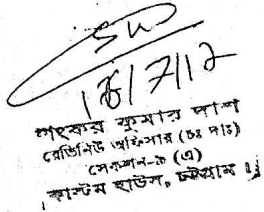 18/7/12
শংকর কুমার দাশ
রেভিনিউ অফিসার (চঃ দাঃ)
সেকশন-৮ (এ)
কাস্টম হাউস, চট্টগ্রাম।